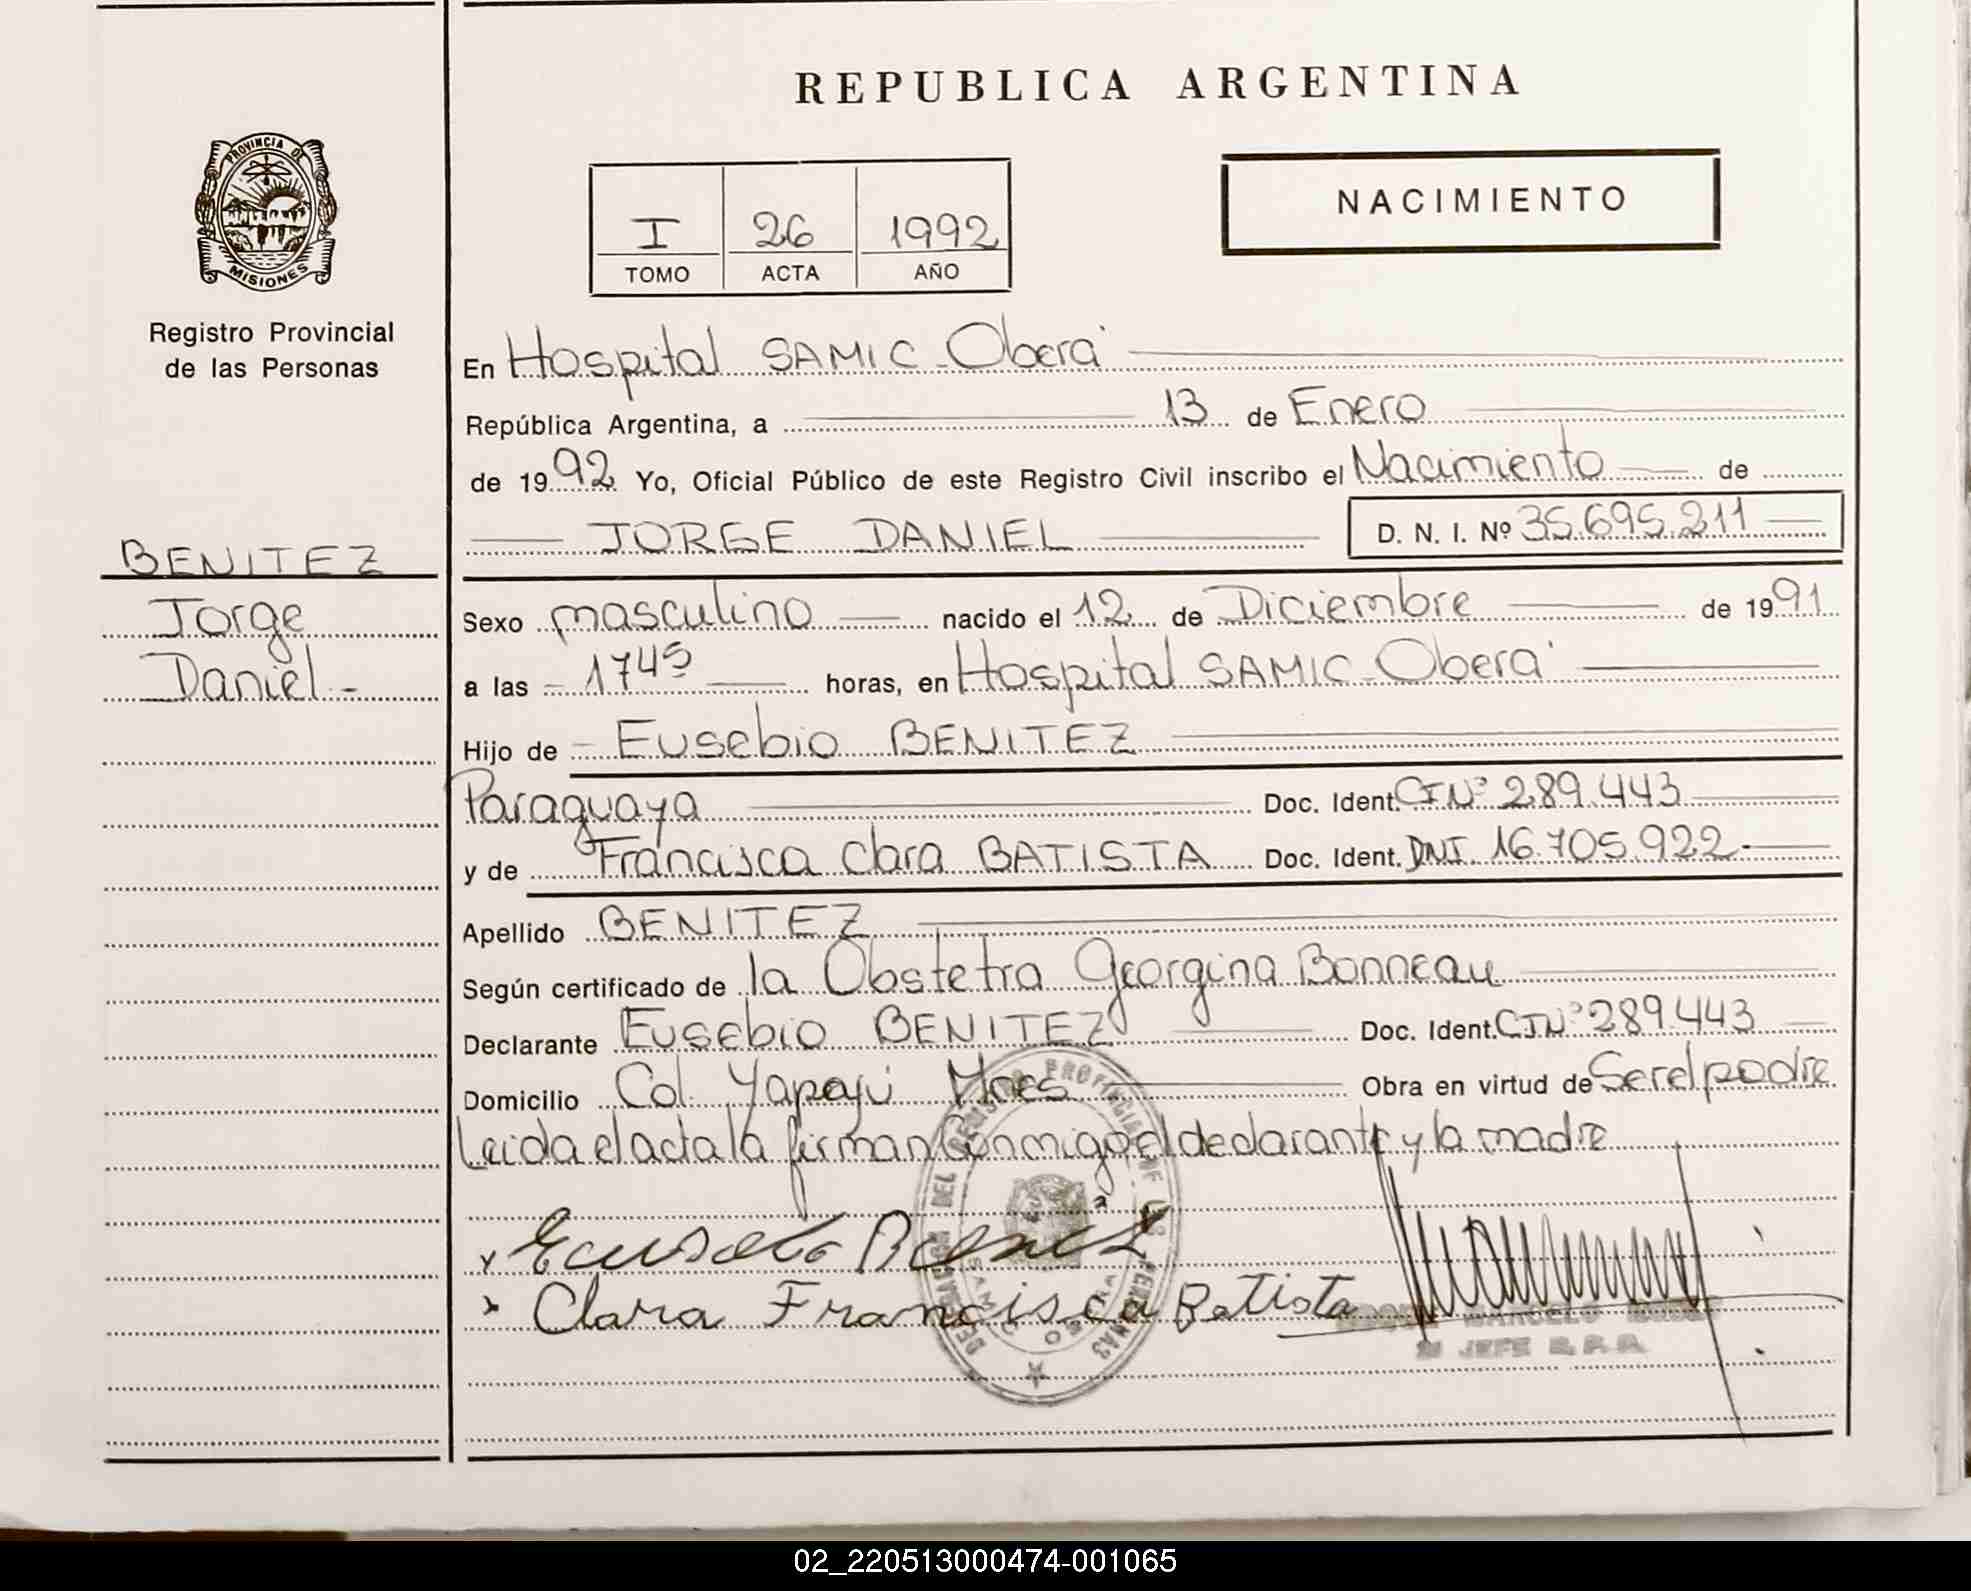 REPUBLICA ARGENTINA
PROVINCIA DE
MISIONES
Registro Provincial
de las Personas
NACIMIENTO
I 26 1992
TOMO ACTA AÑO
En Hospital SAMIC - Oberá
República Argentina, a 13 de Enero
de 1992 Yo, Oficial Público de este Registro Civil inscribo el Nacimiento de
JORGE DANIEL D. N. I. Nº 35.695.211
BENITEZ
Jorge
Daniel.-
Sexo masculino nacido el 12 de Diciembre de 1991
a las - 1745 horas, en Hospital SAMIC - Oberá
Hijo de - Eusebio BENITEZ
Paraguaya Doc. Ident. CI Nº 289.443
y de Francisca Clara BATISTA Doc. Ident. DNI. 16.705.922.-
Apellido BENITEZ
Según certificado de la Obstetra Georgina Bonneau
Declarante Eusebio BENITEZ Doc. Ident. CI Nº 289.443
Domicilio Col. Yapeyú Mnes Obra en virtud de Ser el padre
Leida el acta la firman conmigo el declarante y la madre
Clara Francisca Batista
MARCELO
JEFE
DEL REGISTRO PROVINCIAL DE LAS PERSONAS
SAMIC OBERA
02_220513000474-001065